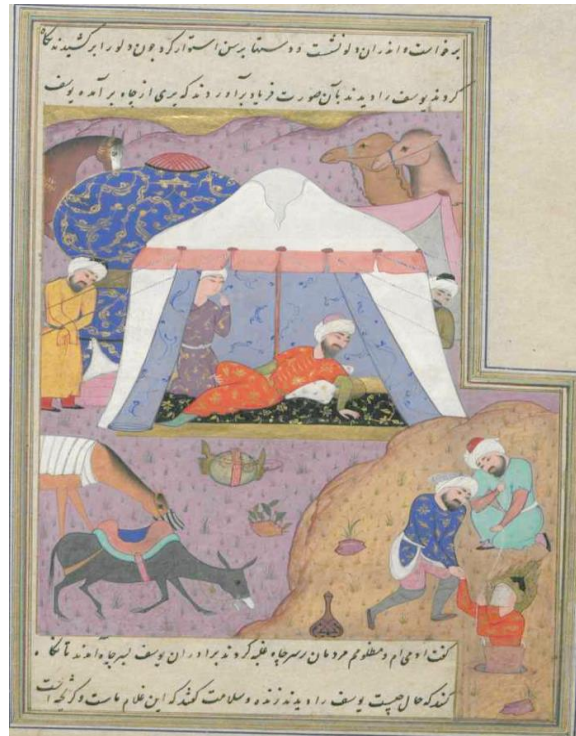 برخواست و اندران دلو نشست و دستها برسن استوار کرد چون دلو را برکشیدند نگاه
کردند یوسف را دیدند بآن صورت فریاد برآوردند که پری از چاه برآمده یوسف
گفت آدمی ام و مظلومم مردمان بر سر چاه غلبه کردند برادران یوسف بسر چاه آمدند تا نگاه
کنند که حال چیست یوسف را دیدند زنده و سلامت گفتند که این غلام ماست و گریخته است